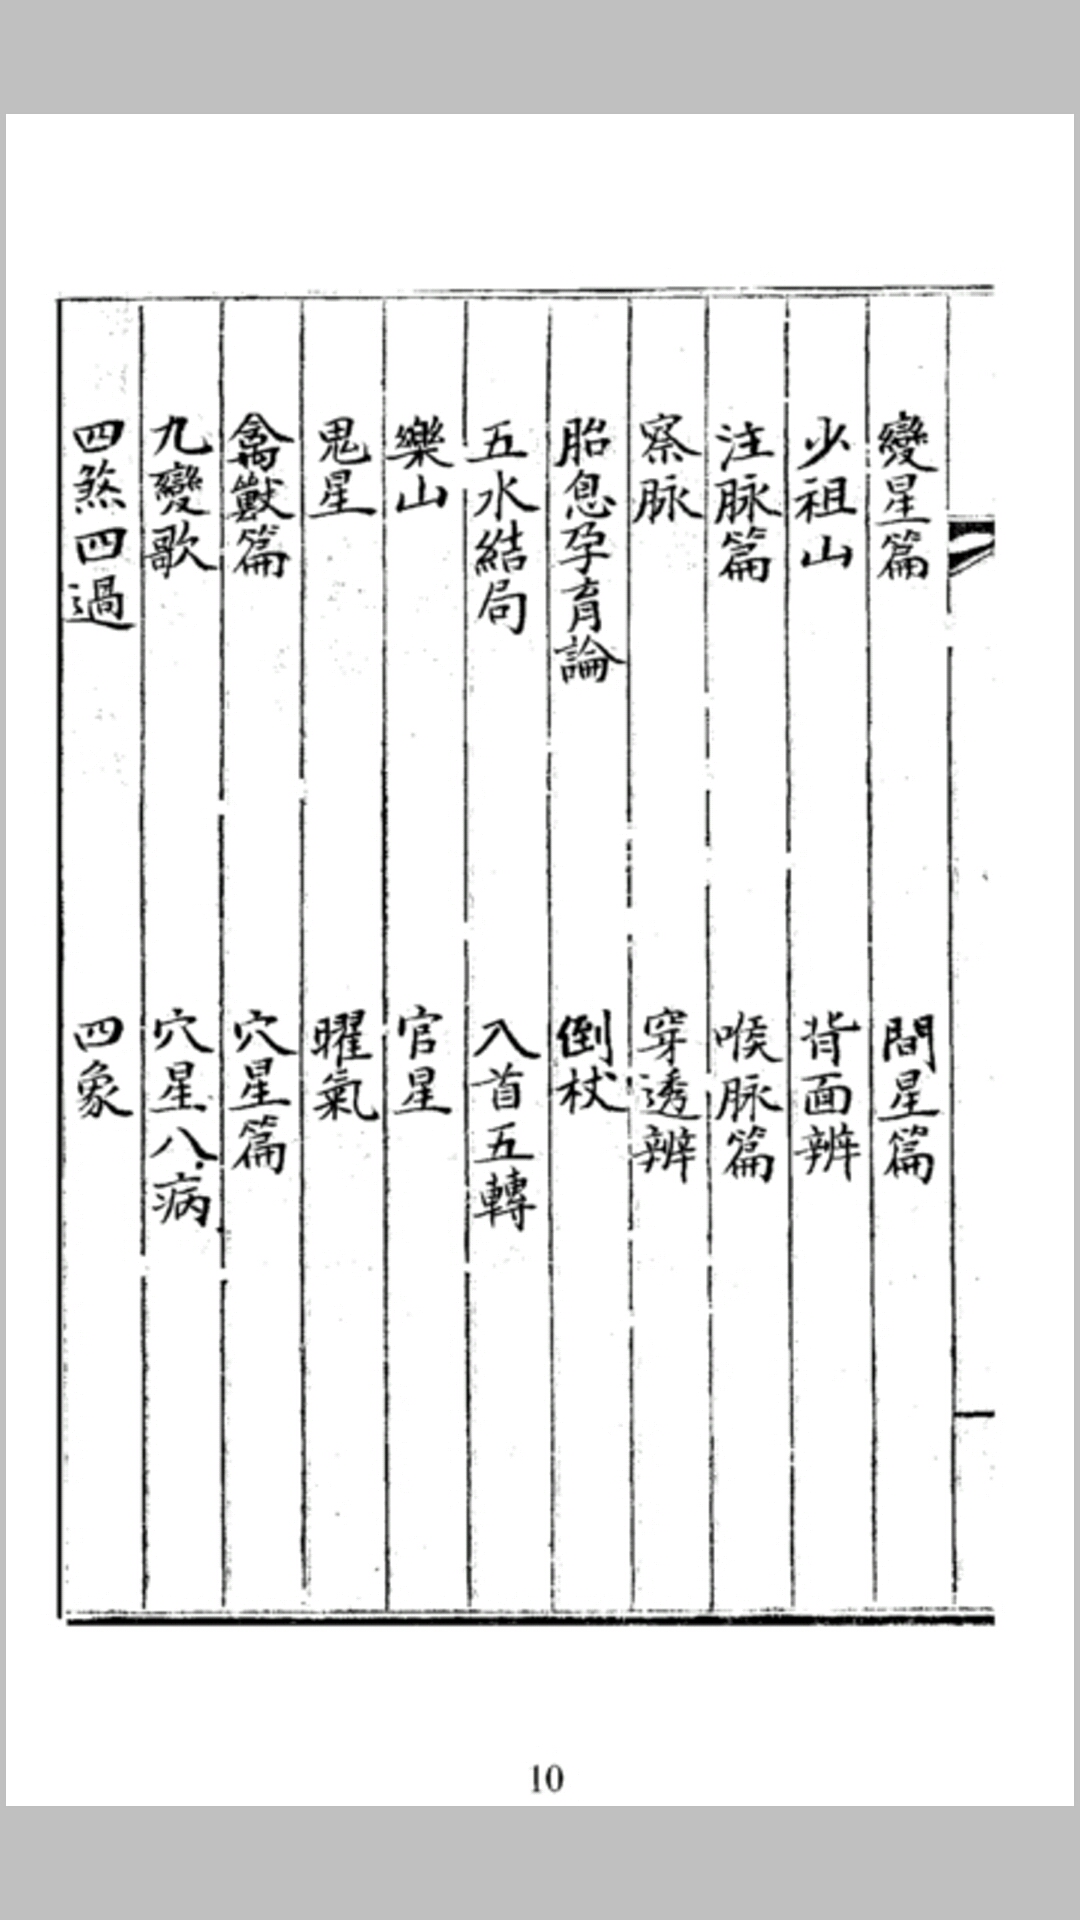 變星篇 間星篇
少祖山 背面辨
注脉篇 喉脉篇
察脉 穿透辨
胎息孕育論 倒杖
五水結局 入首五轉
樂山 官星
鬼星 曜氣
禽獸篇 穴星篇
九變歌 穴星八病
四煞四過 四象
10